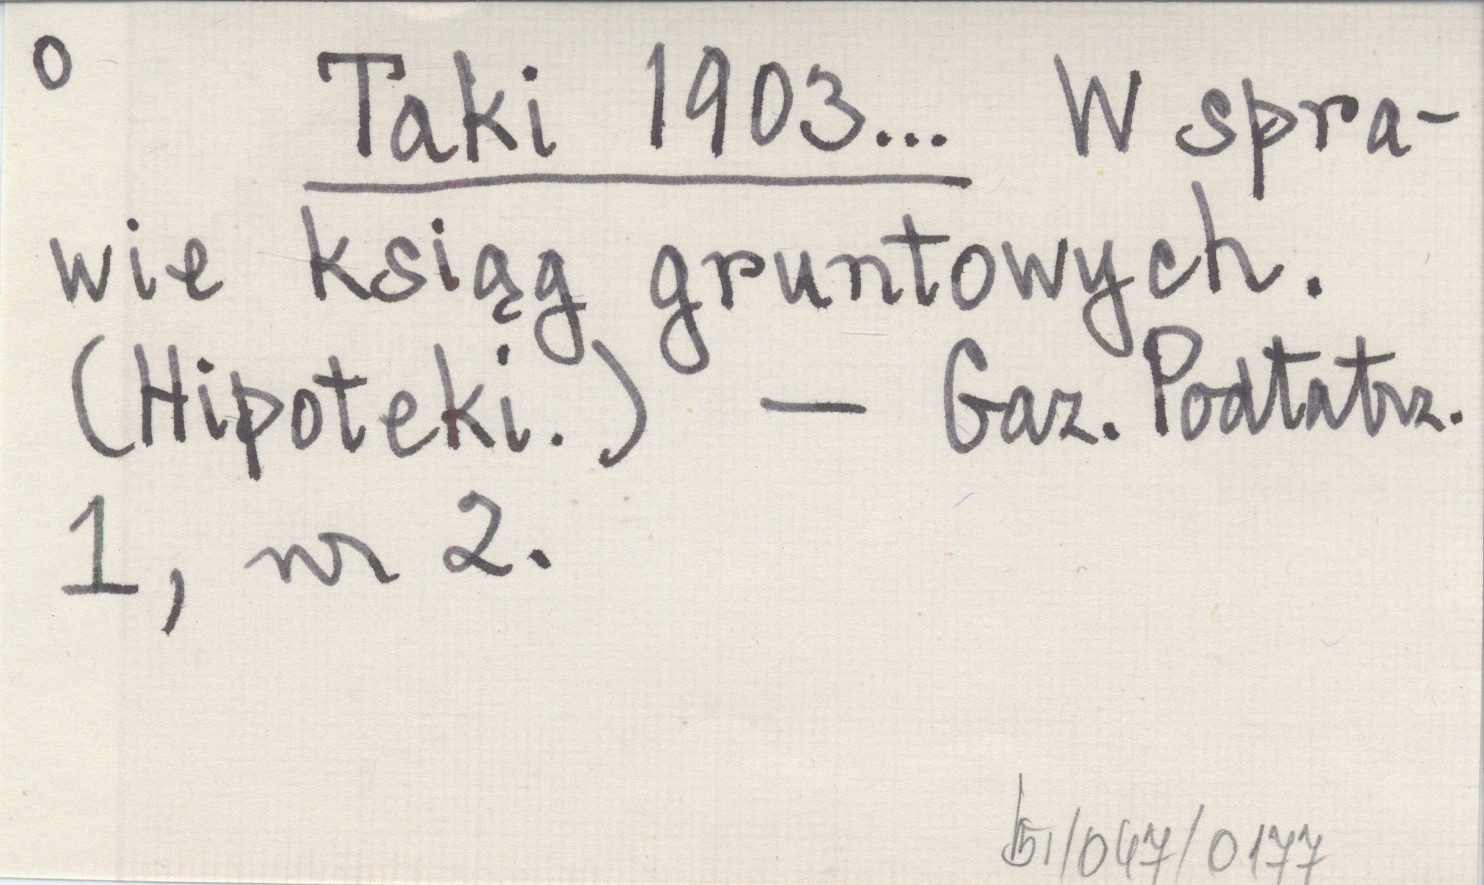 o Taki 1903... W spra-
wie ksiąg gruntowych.
(Hipoteki.) — Gaz. Podtatrz.
1, nr 2.
b51/047/0177